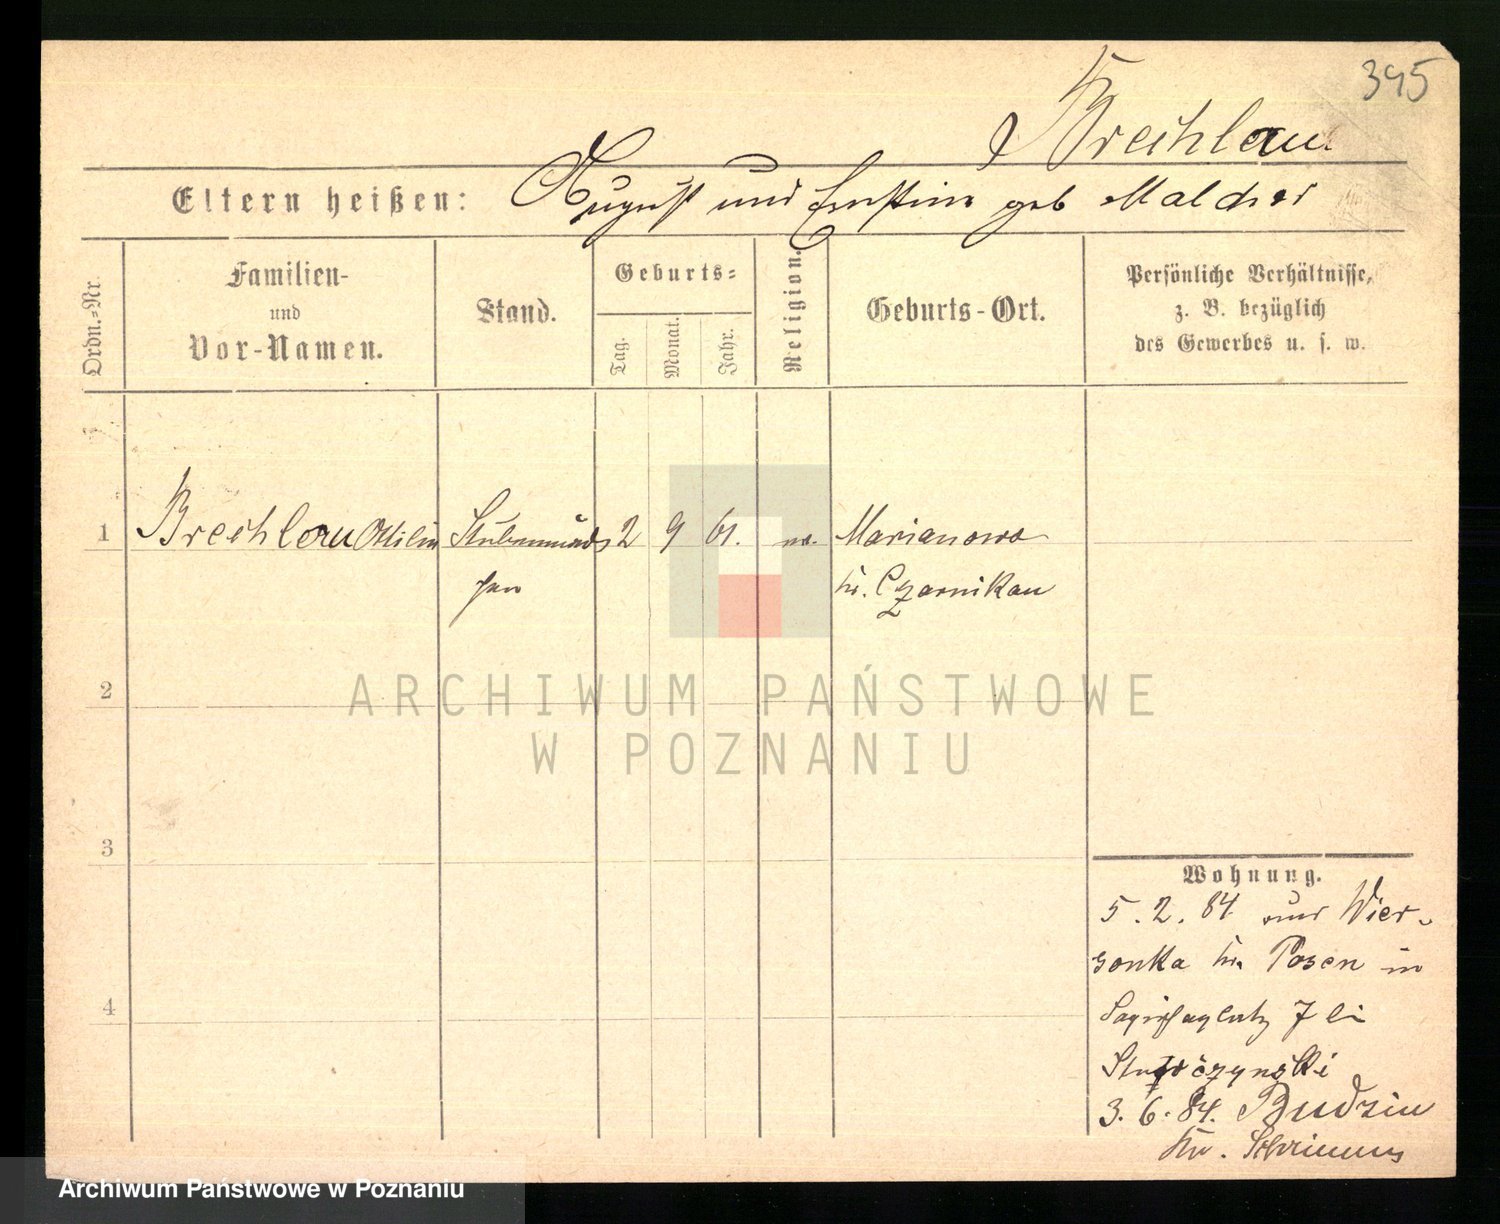 395
Brechlau
Eltern heißen: August und Ernstine geb Malcher
Ordn.-Nr.
Familien-
und
Vor-Namen.
Stand.
Geburts-
Tag.
Monat.
Jahr.
Religion.
Geburts-Ort.
Persönliche Verhältnisse,
z. B. bezüglich
des Gewerbes u. s. w.
1 Brechlau Ottilie 2 9 61. Marianowo
Czarnikau
ARCHIWUM PAŃSTWOWE
W POZNANIU
2
3
4
Wohnung.
5. 2. 84 Wier-
sonka Kr. Posen in
Sapiehaplatz 7 bei
3. 6. 84. Budzin
Kr. Schrimm
Archiwum Państwowe w Poznaniu